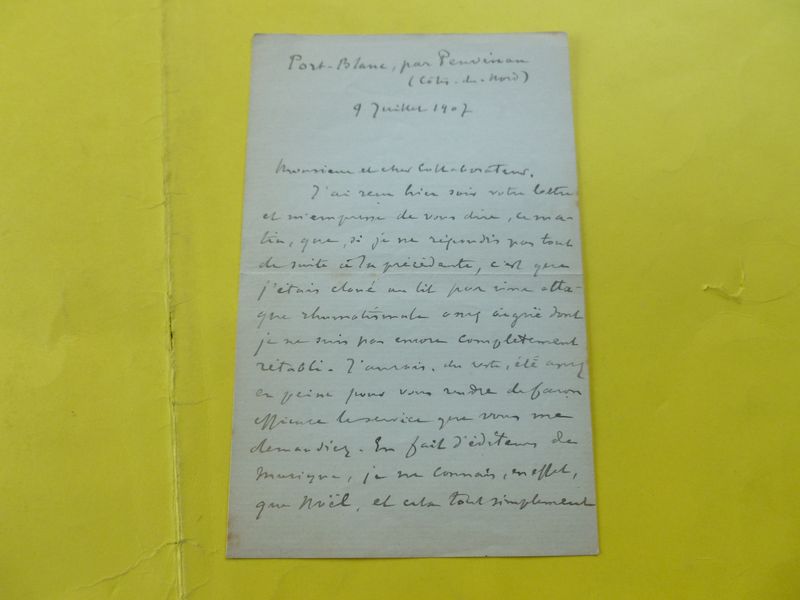 Port-Blanc, par Penvénan
(Côtes-du-Nord)
9 Juillet 1907
Monsieur et cher Collaborateur,
J'ai reçu hier soir votre lettre
et m'empresse de vous dire, ce ma-
tin, que, si je ne répondis pas tout
de suite à la précédente, c'est que
j'étais cloué au lit par une atta-
que rhumatismale assez aigüe dont
je ne suis pas encore complètement
rétabli. J'aurais, du reste, été assez
en peine pour vous rendre de façon
efficace le service que vous me
demandiez. En fait d'éditeurs de
musique, je ne connais, en effet,
que Noël, et cela tout simplement